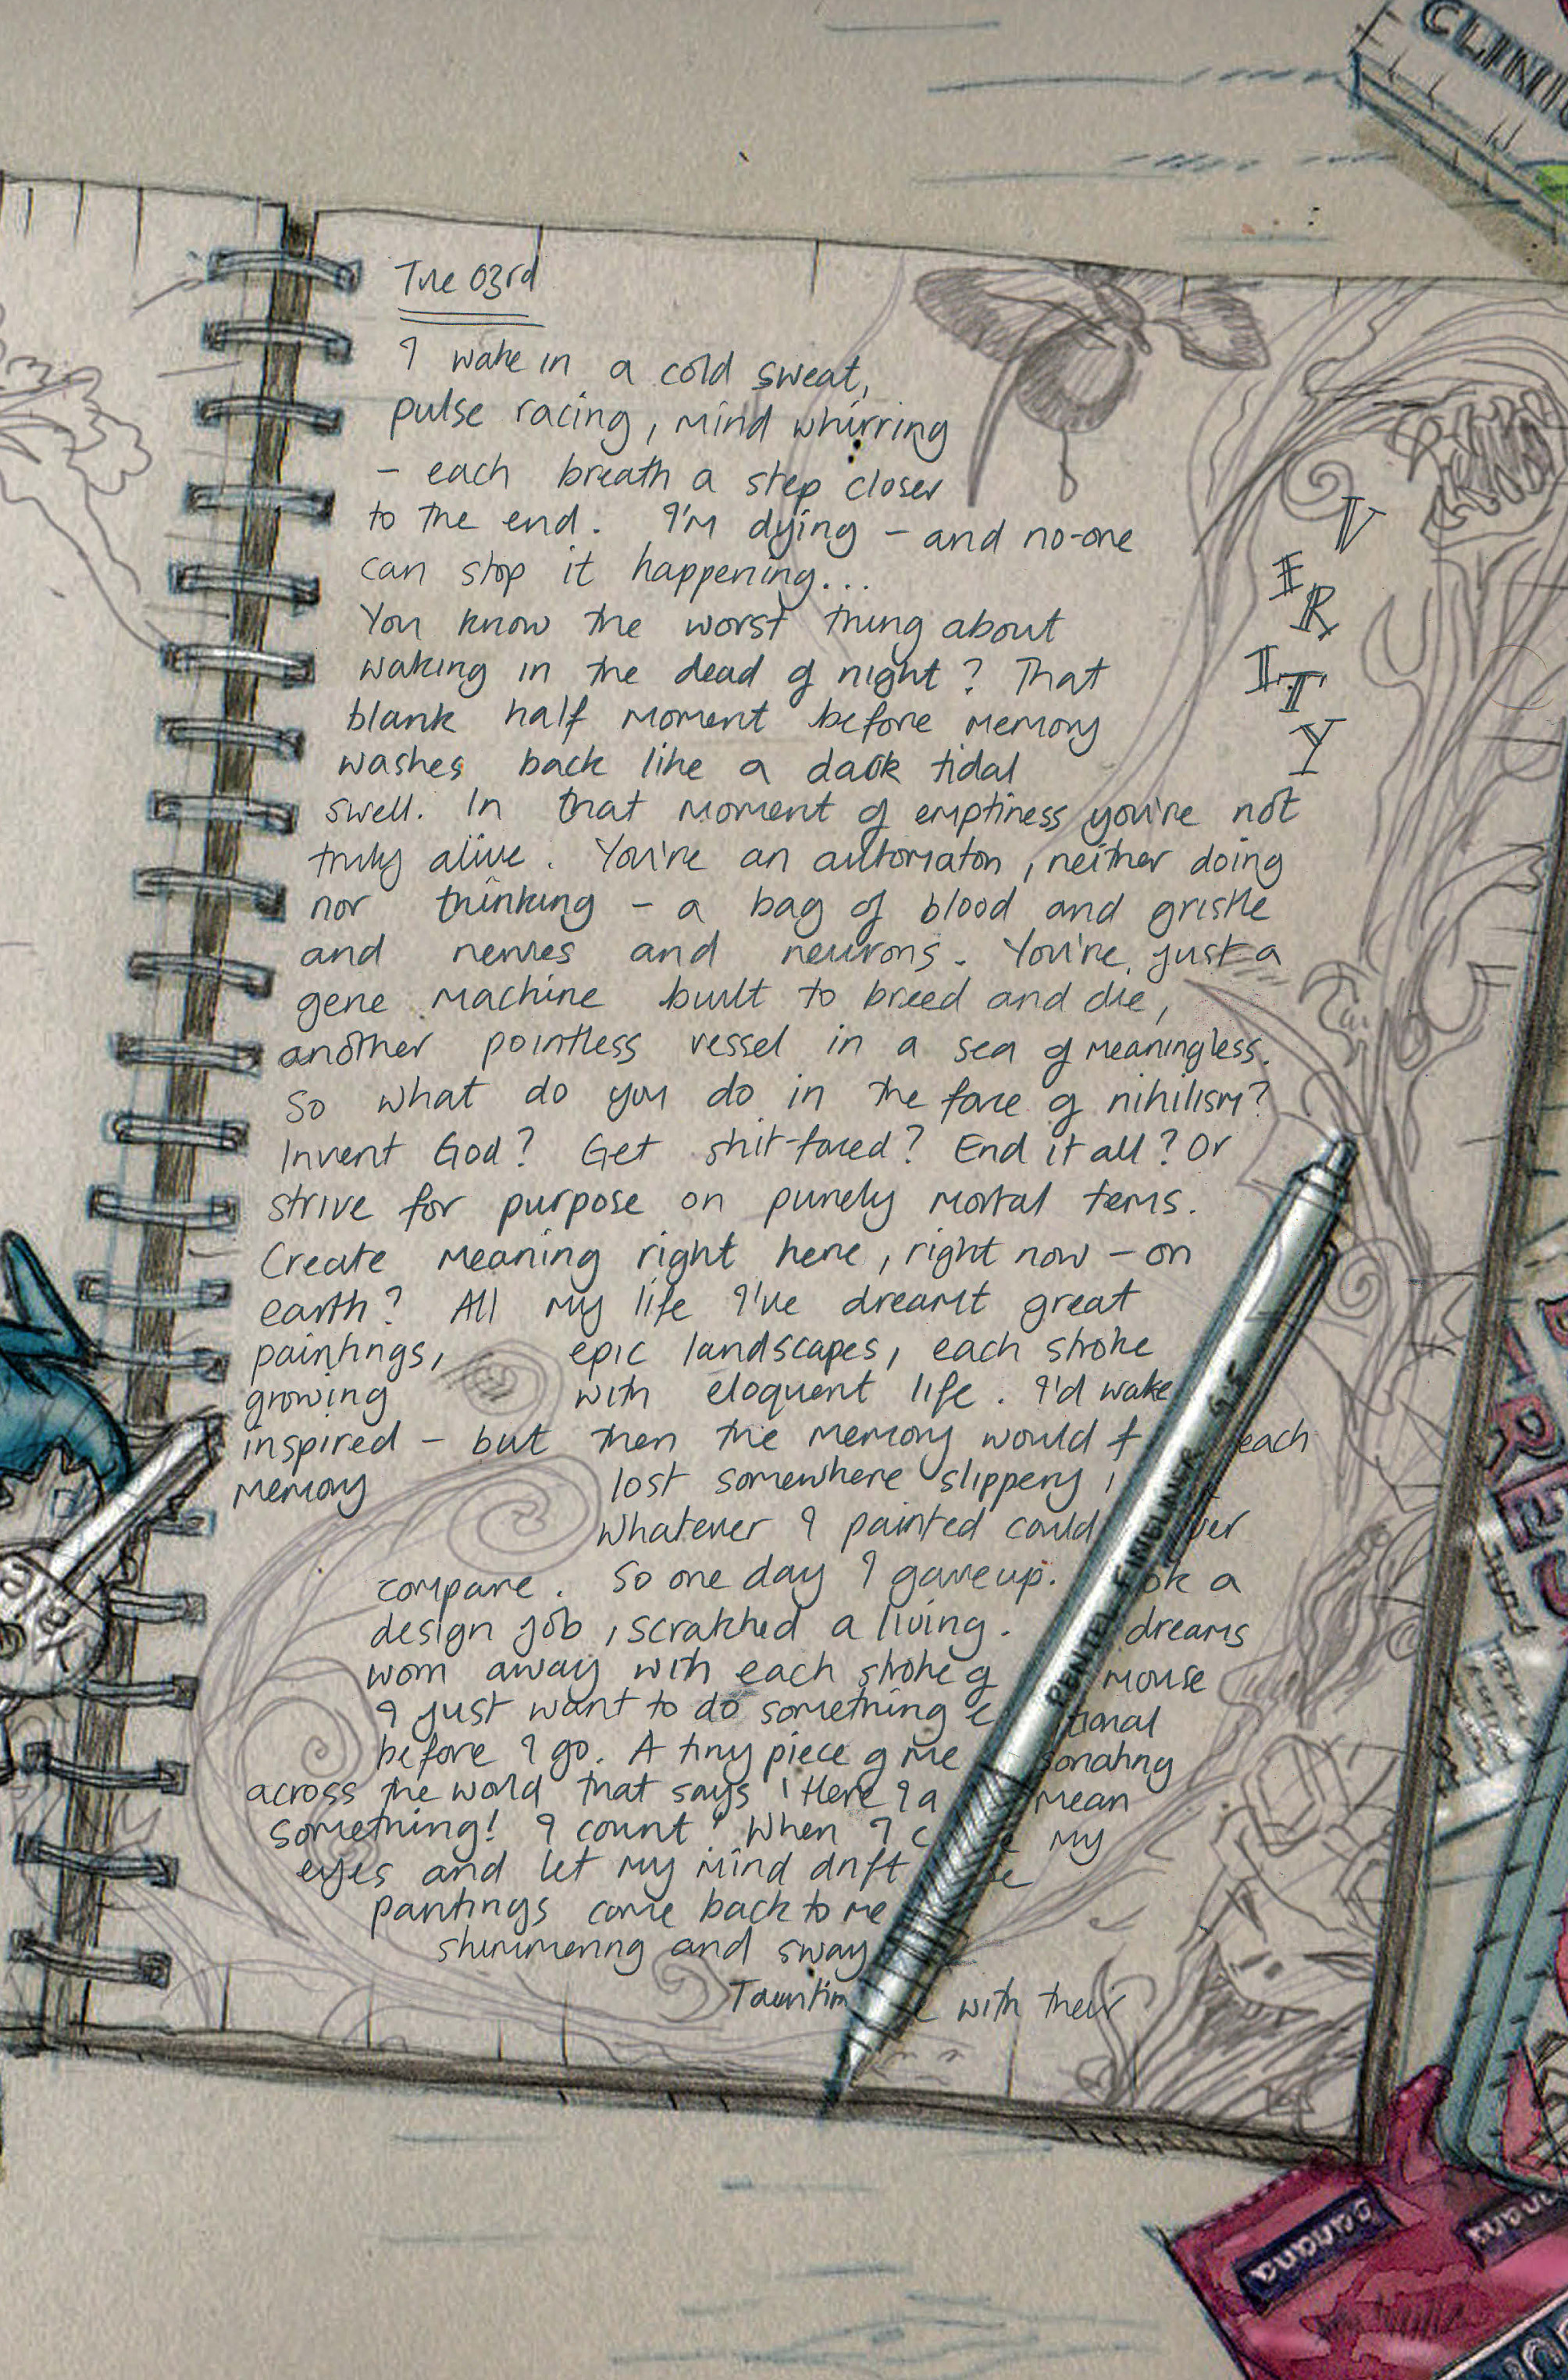 CLINI
Tue 03rd
I wake in a cold sweat,
pulse racing, mind whirring
- each breath a step closer
to the end. I'm dying - and no-one
can stop it happening...
You know the worst thing about
waking in the dead of night? That
blank half moment before memory
washes back like a dark tidal
swell. In that moment of emptiness you're not
truly alive. You're an automaton, neither doing
nor thinking - a bag of blood and gristle
and nerves and neurons. You're just a
gene machine built to breed and die,
another pointless vessel in a sea of meaningless.
So what do you do in the face of nihilism?
Invent God? Get shit-faced? End it all? Or
strive for purpose on purely mortal terms.
Create meaning right here, right now - on
earth? All my life I've dreamt great
paintings, epic landscapes, each stroke
growing with eloquent life. I'd wake
inspired - but then the memory would f each
memory lost somewhere slippery
whatever I painted could ver
compare. So one day I gave up. ok a
design job, scratched a living. dreams
worn away with each stroke of mouse
I just want to do something e tional
before I go. A tiny piece of me sonating
across the world that says 'Here I a mean
something! I count' When I c my
eyes and let my mind drift
paintings come back to me
shimmering and sway
Tauntin with their
V
E
R
I
T
Y
PENTEL FINELINER 9.5
RES
banana
nana